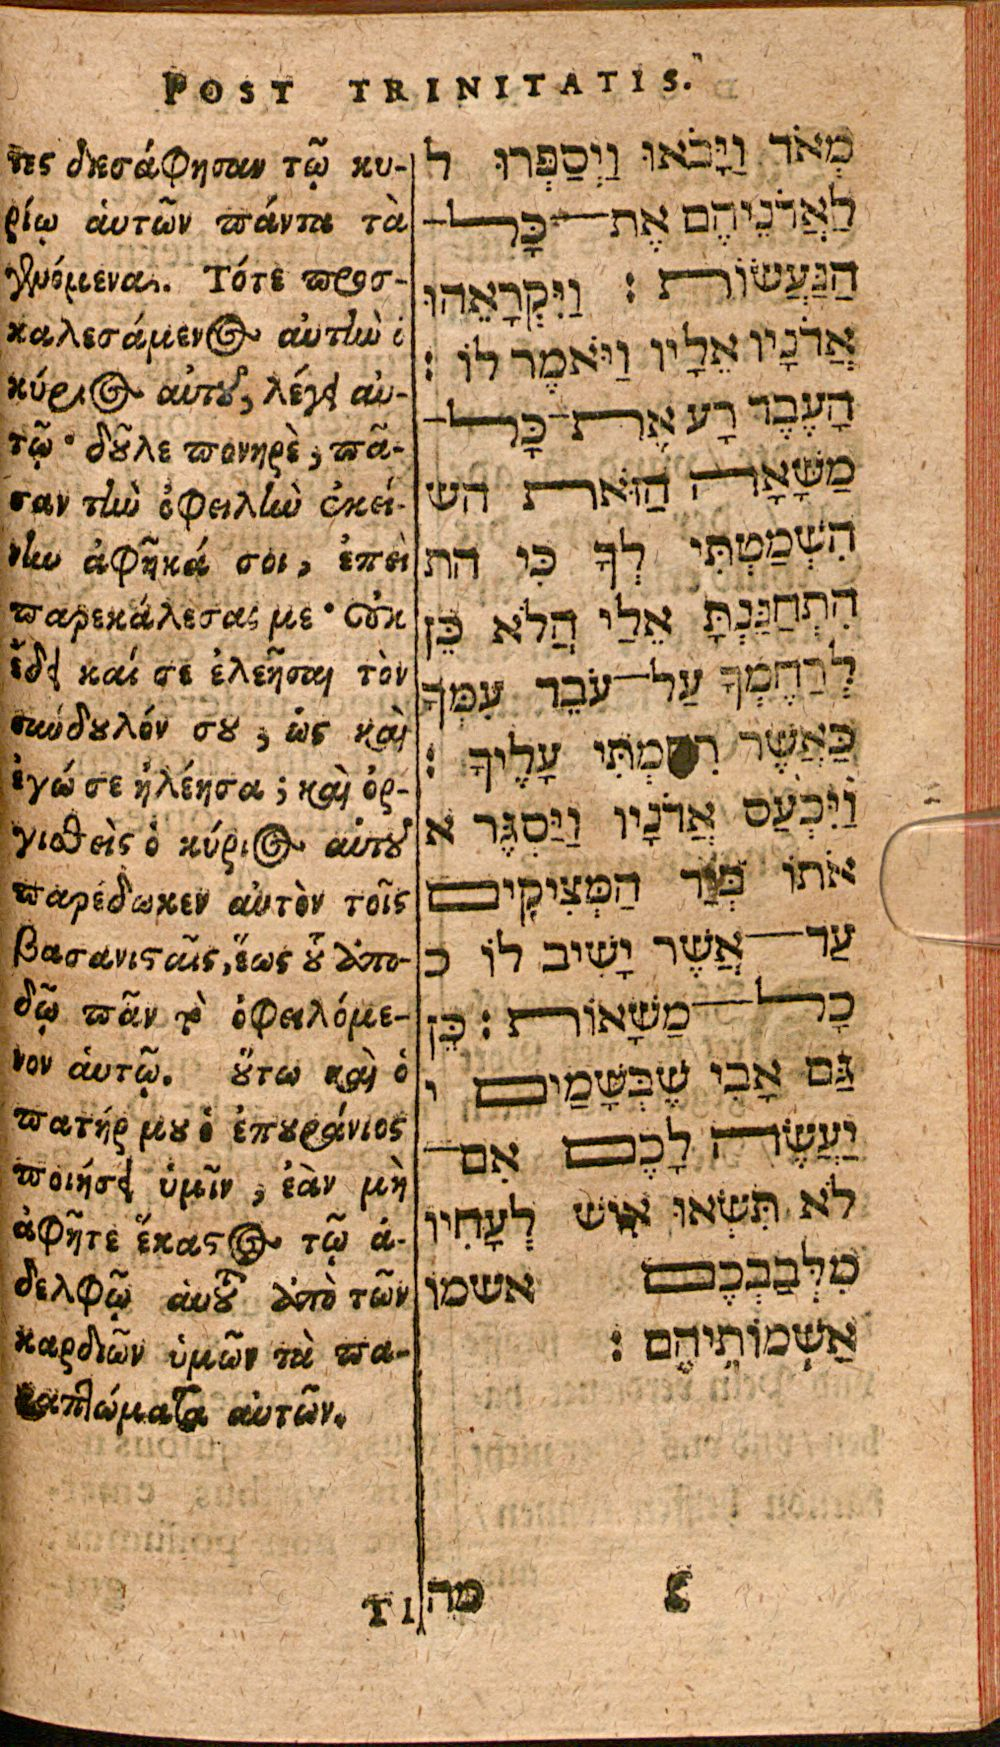 POST TRINITATIS.
τες διεσάφησαν τῷ κυ-
ρίῳ ἁυτῶν πάντα τὰ
γενόμενα. Τότε προσ-
καλεσάμενος αὐτὸν ὁ
κύριος αὐτοῦ, λέγει αὐ-
τῷ· δοῦλε πονηρὲ, πᾶ-
σαν τὴν ὀφειλὴν ἐκεί-
νην ἀφῆκά σοι, ἐπεὶ
παρεκάλεσας με· Οὐκ
ἔδει καί σε ἐλεῆσαι τὸν
σύνδουλόν σου, ὡς καὶ
ἐγώ σε ἠλέησα; καὶ ὀρ-
γισθεὶς ὁ κύριος αὐτοῦ
παρέδωκεν αὐτὸν τοῖς
βασανισταῖς, ἕως οὗ ἀπο-
δῷ πᾶν τὸ ὀφειλόμε-
νον ἁυτῷ. οὕτω καὶ ὁ
πατήρ μου ὁ ἐπουράνιος
ποιήσει ὑμῖν, ἐὰν μὴ
ἀφῆτε ἕκαστος τῷ ἀ-
δελφῷ ἁυτοῦ ἀπὸ τῶν
καρδιῶν ὑμῶν τὰ πα-
ραπτώματα αὐτῶν.
מְאֹד וַיָּבֹאוּ וַיְסַפְּרוּ ל
לַאֲדֹנֵיהֶם אֶת־כָּל־
הַנַּעֲשׂוֹת׃ וַיִּקְרָאֵהוּ
אֲדֹנָיו אֵלָיו וַיֹּאמֶר לוֹ׃
הָעֶבֶד רָע אֶת־כָּל־
מַשָּׁאָה הַזֹּאת הש
הִשְׁמַטְתִּי לְךָ כִּי הת
הִתְחַנַּנְתָּ אֵלַי הֲלֹא כֵּן
לְרַחֶמְךָ עַל־עֹבֵד עִמְּךָ
כַּאֲשֶׁר רִחַמְתִּי עָלֶיךָ׃
וַיִּכְעַס אֲדֹנָיו וַיַּסְגֵּר א
אֹתוֹ בְּיַד הַמְּצִיקִים
עַד־אֲשֶׁר יָשִׁיב לוֹ כ
כָל־מַשָּׁאוֹת׃ כֵּן
גַּם אָבִי שֶׁבְּשָּׁמַיִם י
יַעֲשֶׂה לָכֶם אִם־
לֹא תִּשְׂאוּ אִישׁ לְעָחִיו
מִלְּבַבְכֶם אשמו
אַשְׁמוֹתֵיהֶם׃
TI
מה